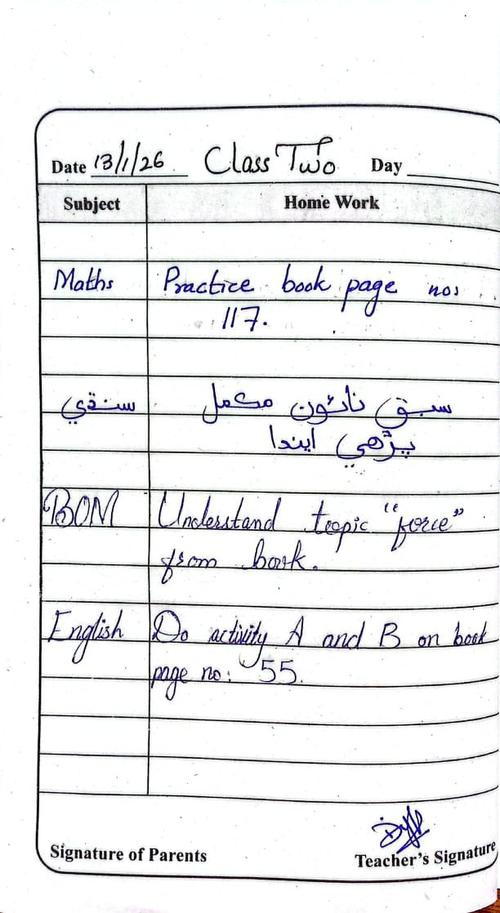 Date 13/1/26 Class Two Day
Subject Home Work
Maths Practice book page no:
117.
سنڌي سبق نائون مڪمل
پڙهي ايندا
BOM Understand topic "force"
from book.
English Do activity A and B on book
page no: 55.
Signature of Parents Teacher's Signature